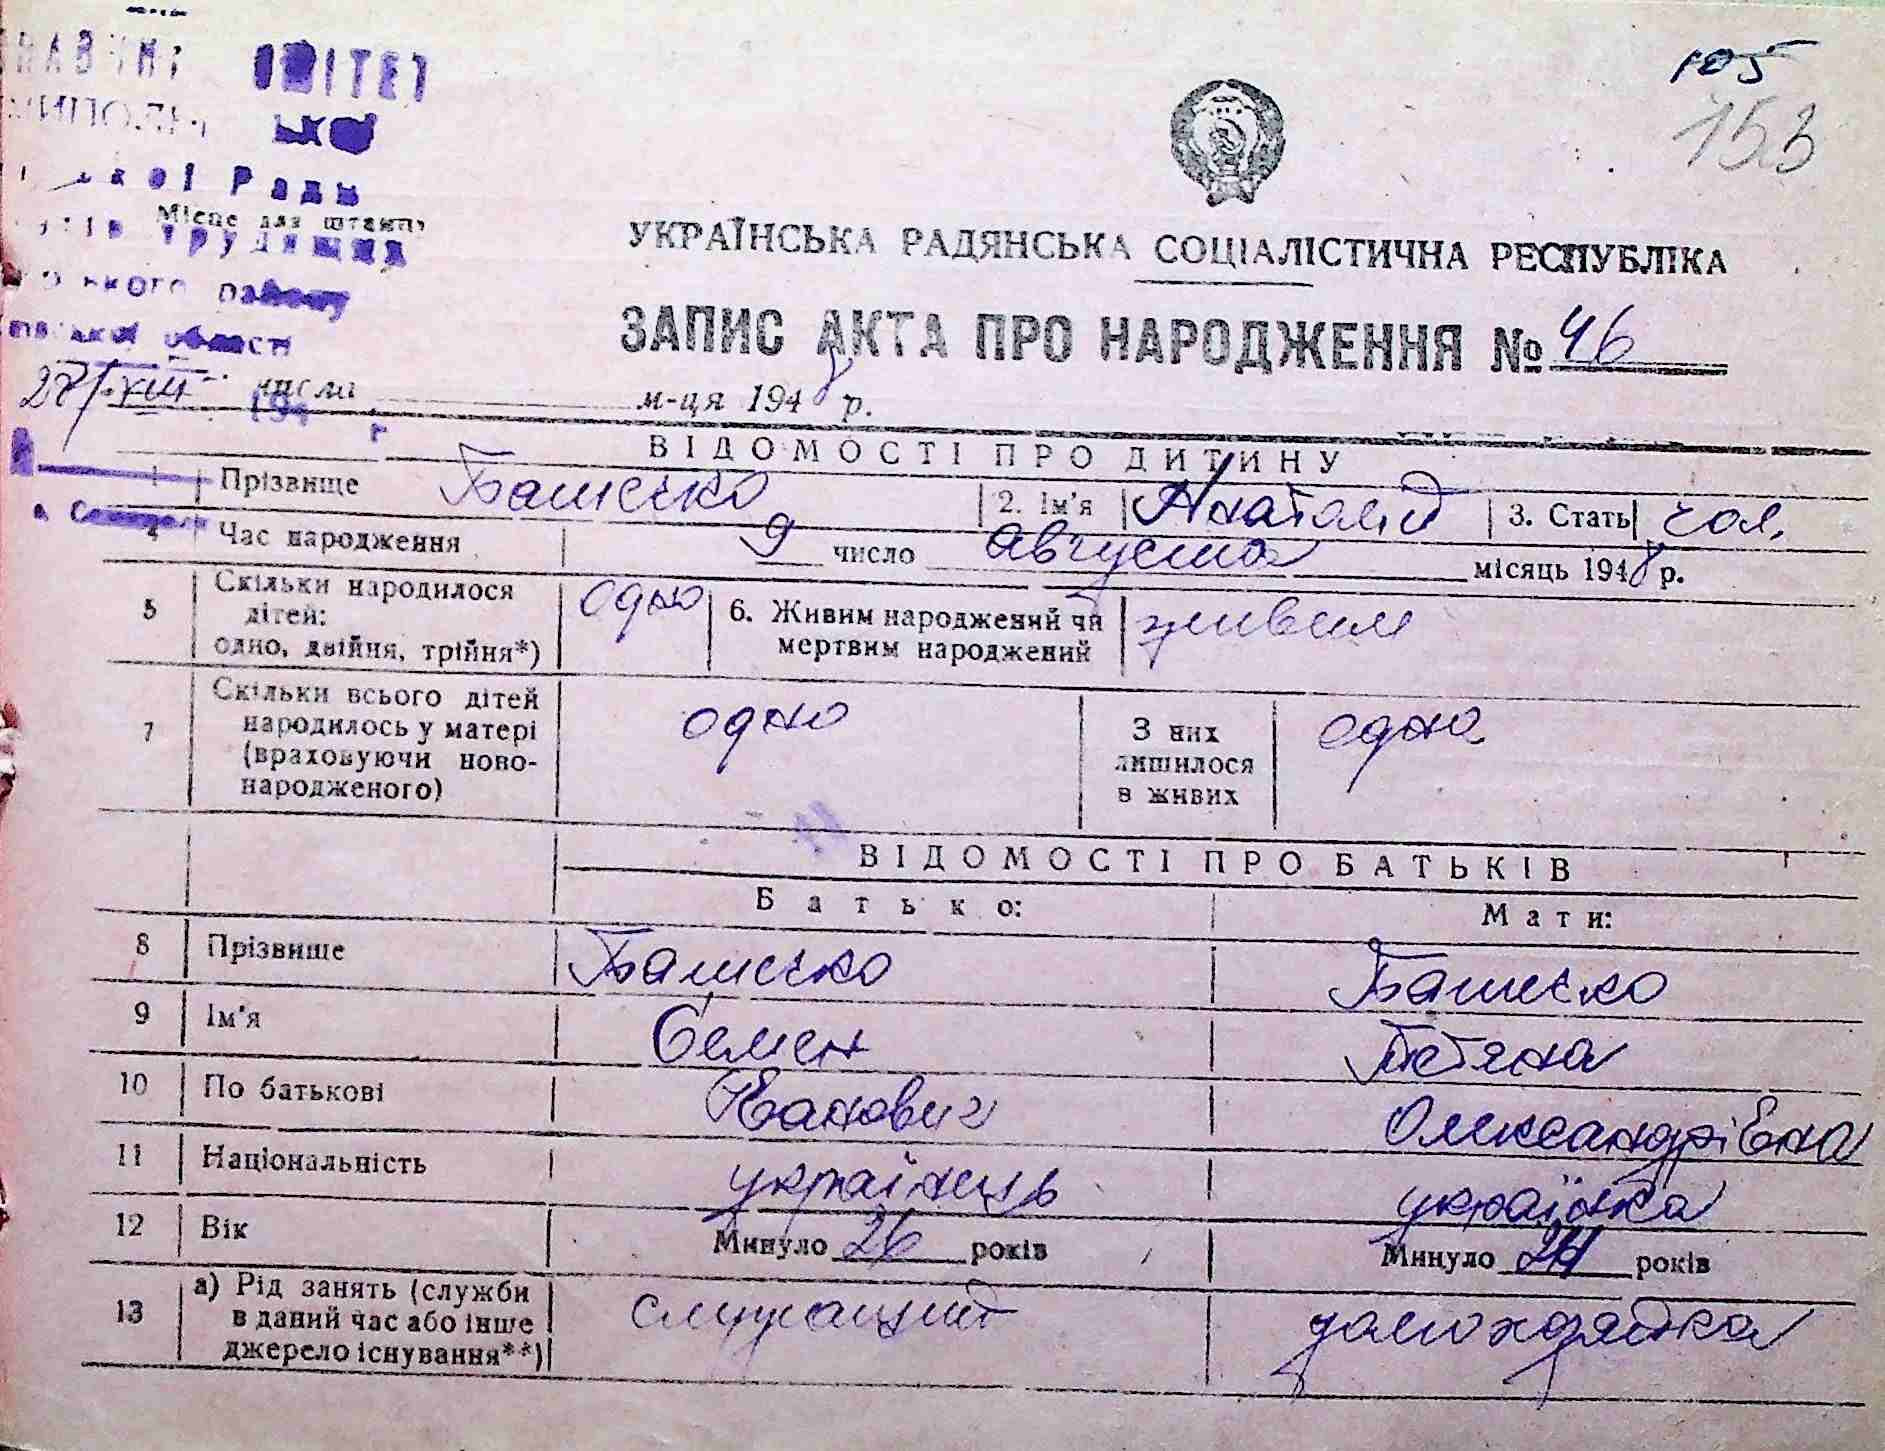 105
153
ОМІТЕТ
Ради
Місце для штампу
трудящих
району
області
УКРАЇНСЬКА РАДЯНСЬКА СОЦІАЛІСТИЧНА РЕСПУБЛІКА
ЗАПИС АКТА ПРО НАРОДЖЕННЯ № 46
числа м-ця 1948 р.
194 г
ВІДОМОСТІ ПРО ДИТИНУ
1 Прізвище 2. Ім'я Анатолій 3. Стать чол.
4 Час народження 9 число августа місяць 1948 р.
5 Скільки народилося дітей: одно, двійня, трійня*) одно 6. Живим народжений чи мертвим народжений живим
7 Скільки всього дітей народилось у матері (враховуючи ново-народженого) одно З них лишилося в живих одно
ВІДОМОСТІ ПРО БАТЬКІВ
Батько: Мати:
8 Прізвище
9 Ім'я Семен Тетяна
10 По батькові Іванович Олександрівна
11 Національність українець українка
12 Вік Минуло 26 років Минуло 24 років
13 а) Рід занять (служби в даний час або інше джерело існування**) служащий домохозяйка